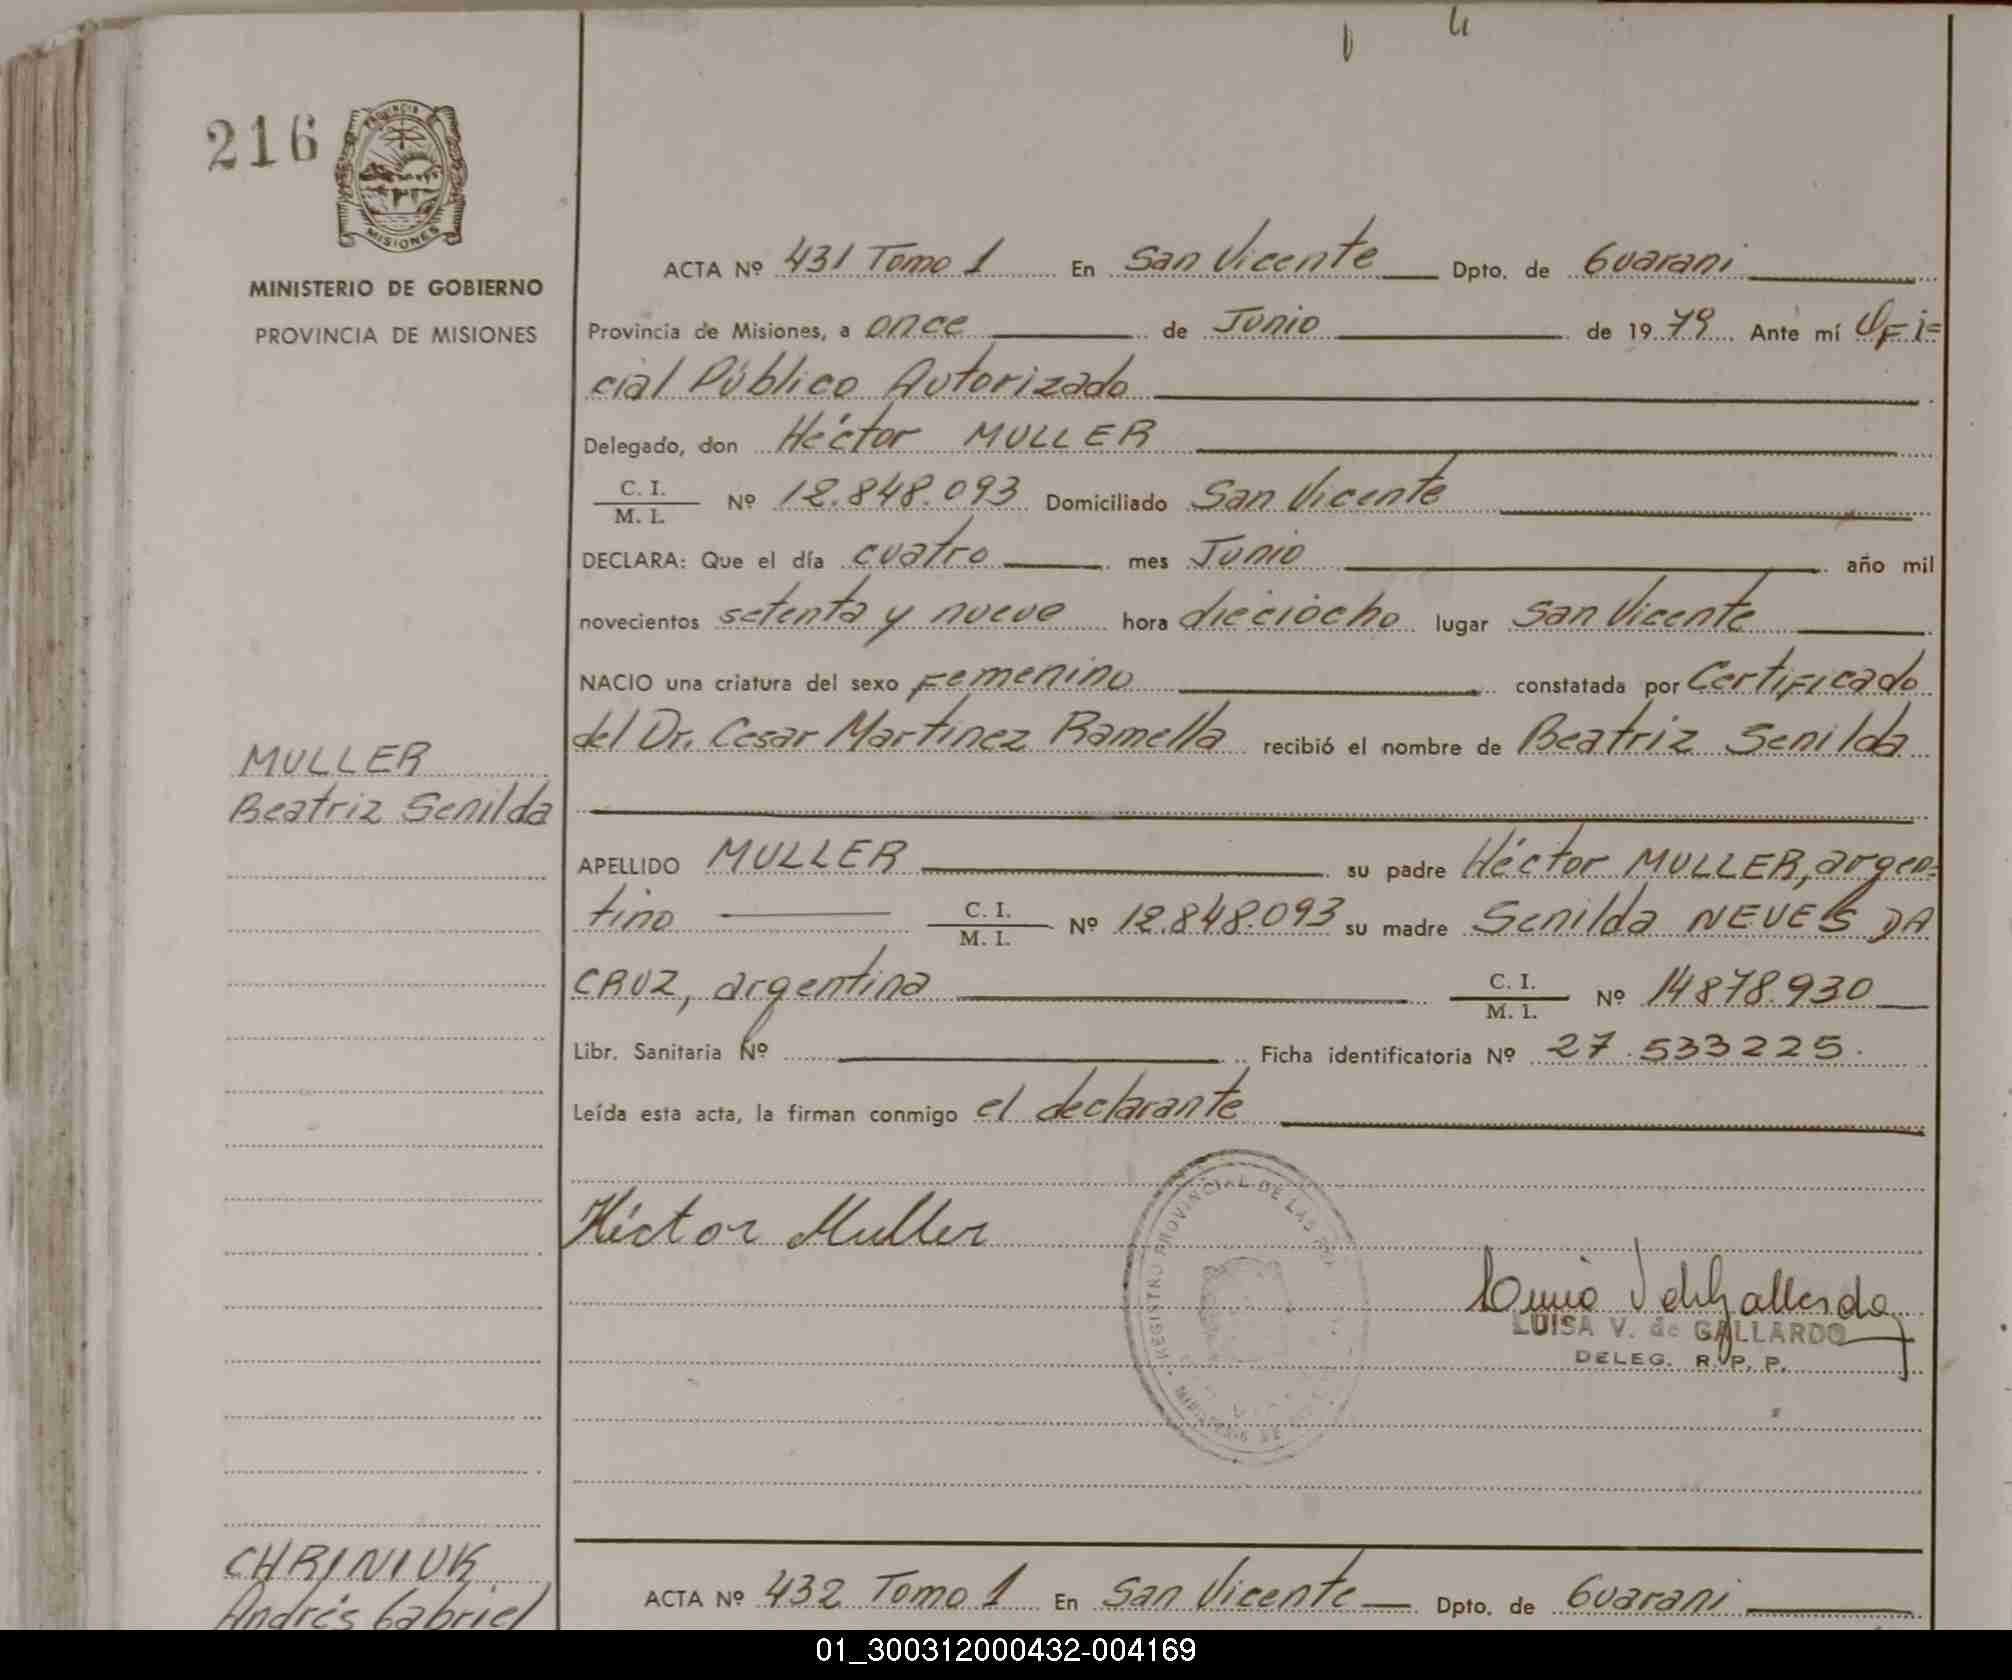 216
PROVINCIA
MISIONES
MINISTERIO DE GOBIERNO
PROVINCIA DE MISIONES
ACTA Nº 431 Tomo 1 En San Vicente Dpto. de Guarani
Provincia de Misiones, a once de Junio de 19 79 Ante mí Ofi=
cial Público Autorizado
Delegado, don Héctor MULLER
C. I.
M. I. Nº 12.848.093 Domiciliado San Vicente
DECLARA: Que el día cuatro mes Junio año mil
novecientos setenta y nueve hora dieciocho lugar San Vicente
NACIO una criatura del sexo Femenino constatada por Certificado
del Dr. Cesar Martinez Ramella recibió el nombre de Beatriz Senilda
MULLER
Beatriz Senilda
APELLIDO MULLER su padre Héctor MULLER, argen=
tino C. I.
M. I. Nº 12.848.093 su madre Senilda NEVES DA
CRUZ, argentina C. I.
M. I. Nº 14878.930
Libr. Sanitaria Nº Ficha identificatoria Nº 27.533225.
Leída esta acta, la firman conmigo el declarante
Héctor Muller
REGISTRO PROVINCIAL DE LAS
LUISA V. de GALLARDO
DELEG. R. P. P.
CHRINIUK
Andrés Gabriel
ACTA Nº 432 Tomo 1 En San Vicente Dpto. de Guarani
01_300312000432-004169